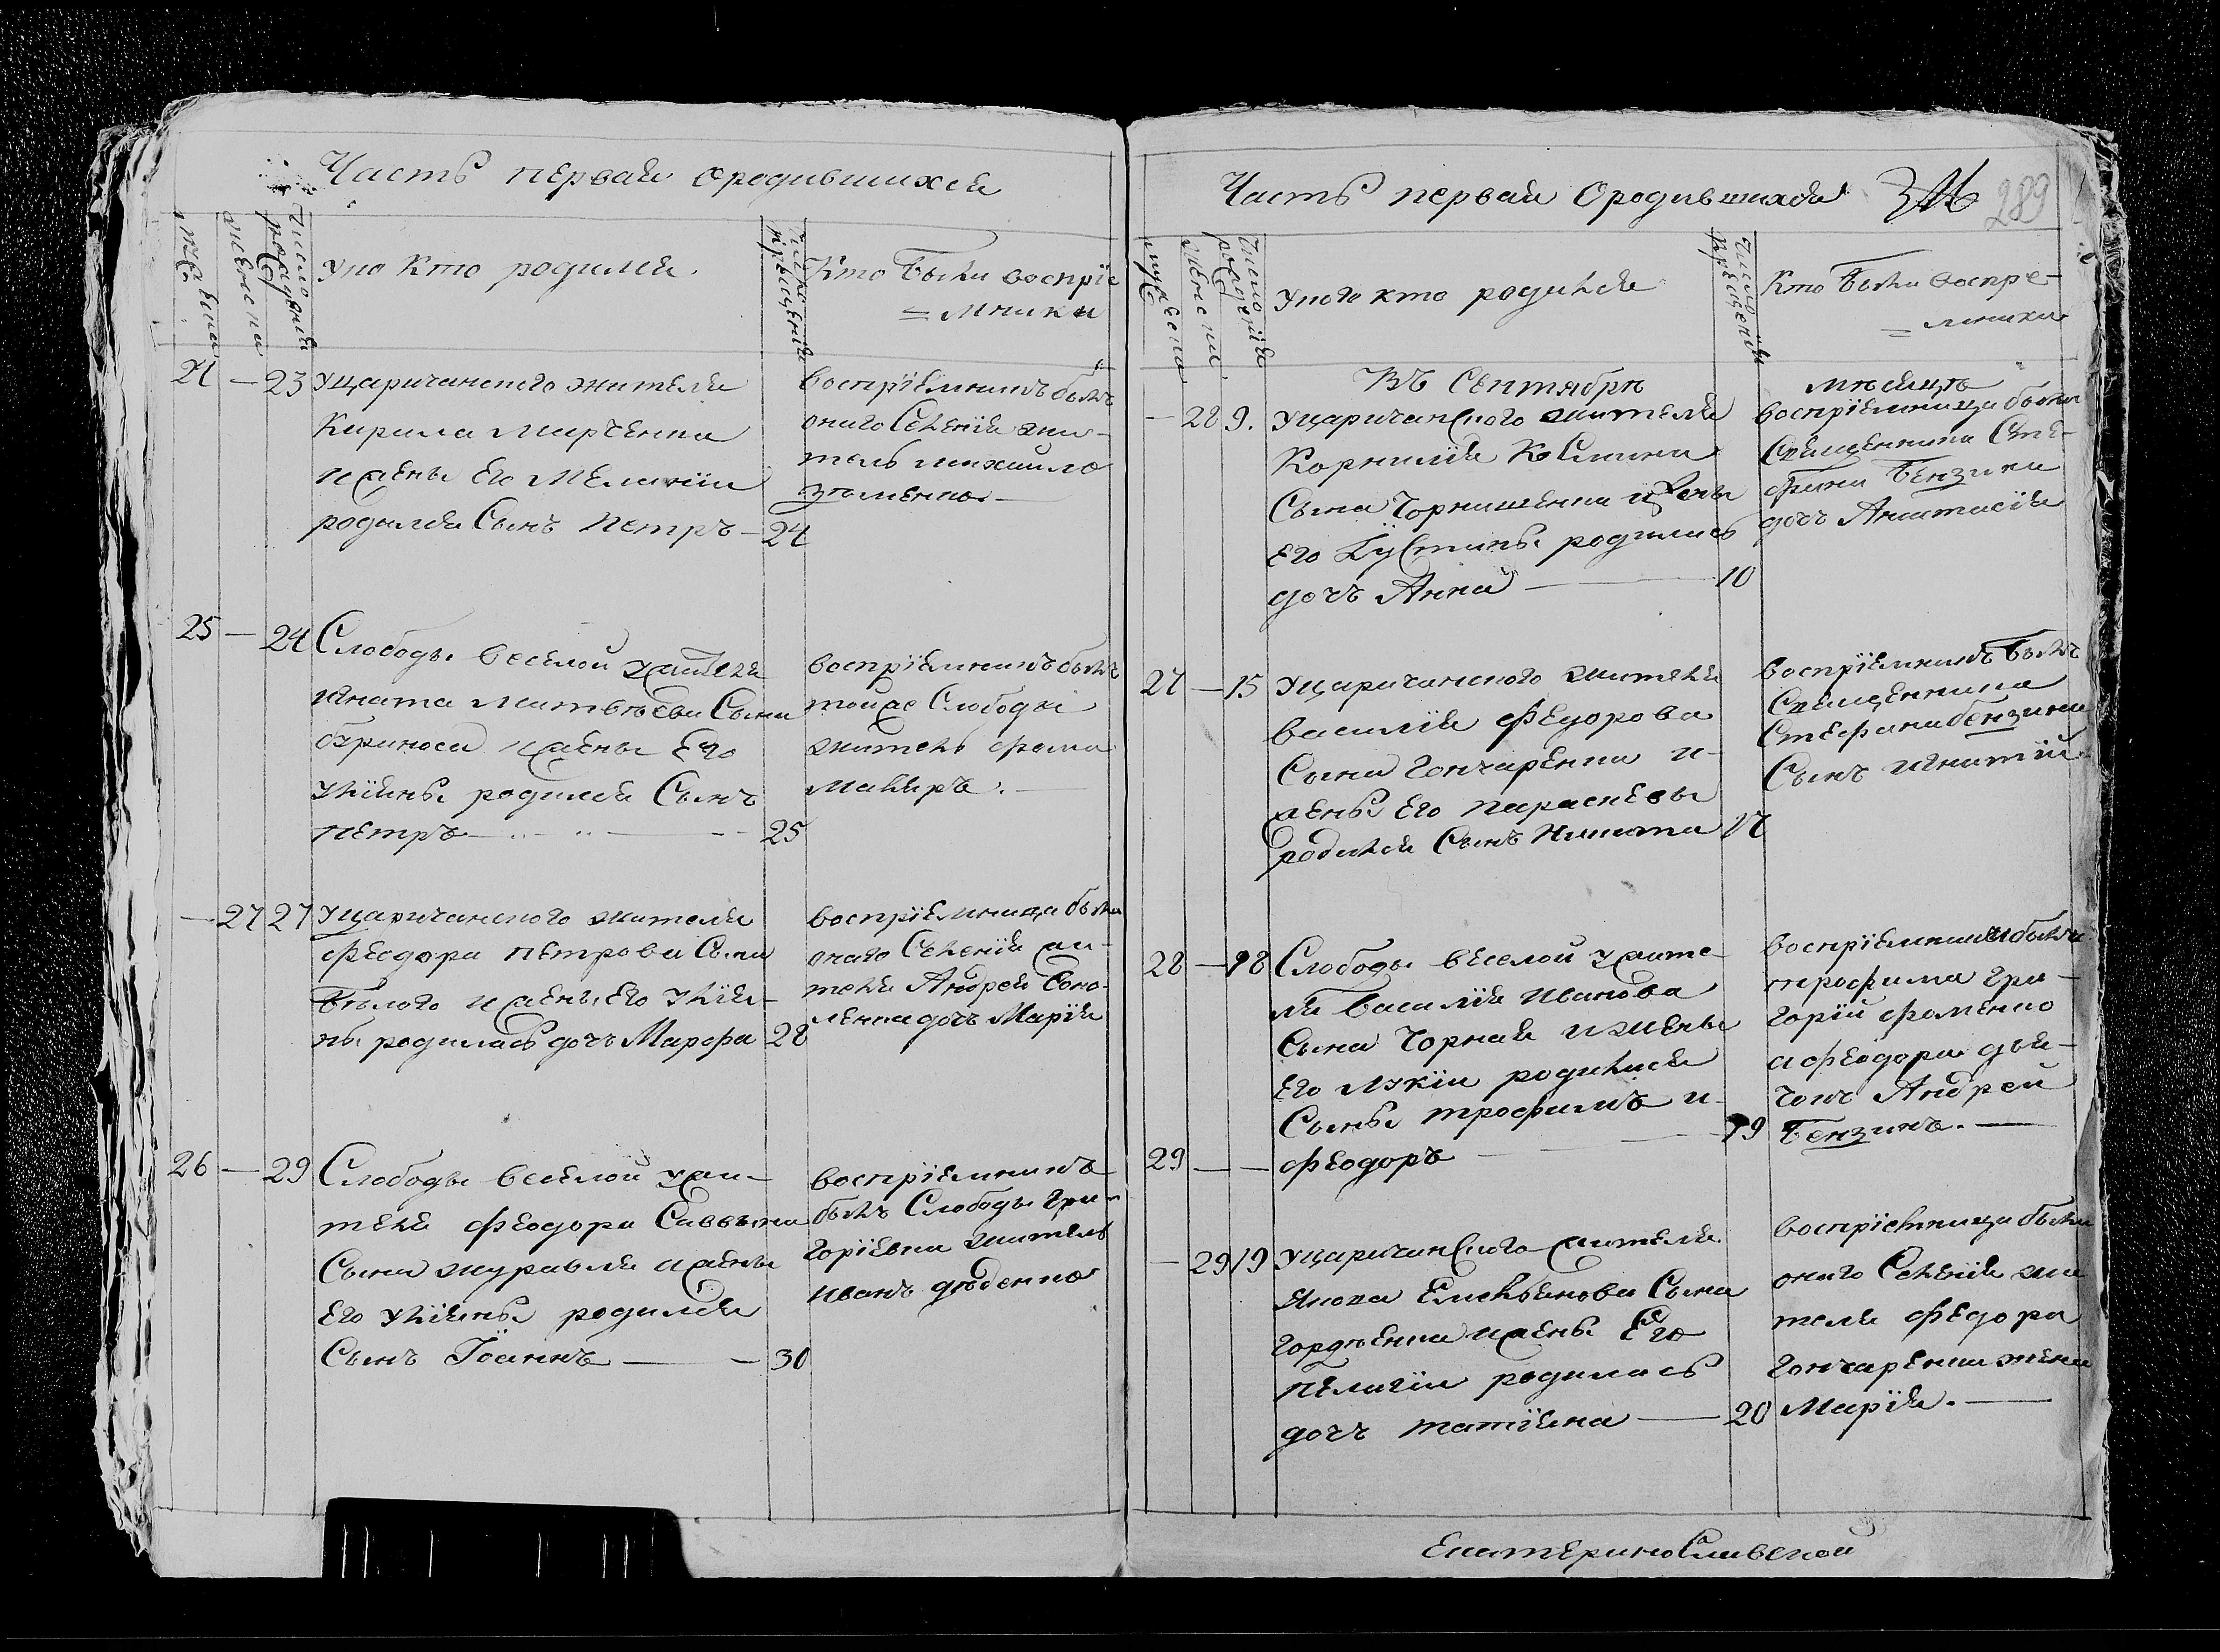 Часть первая о родившихся
Число рождений
У кого кто родился
Число крещенія
Кто были воспріе
= мники
24 — 23 У царичанского жителя
Кирила Марченка
и жены его Меланіи
родился Сынъ Петръ — 24
воспріемникъ былъ
оного Селенія жи-
тель михайло
25 — 24 Слободы веселой жителя
Игната Матвѣева Сына
и жены Его
Улияны родился Сынъ
петръ — 25
воспріемникъ былъ
тойже Слободы
житель фома
макаръ.
— 27 27 У царичанского жителя
Феодора петрова Сына
бѣлого и жены Его Улия-
ны родилась дочъ Марфа 28
воспріемница была
оного Селенія жи-
теля Андрея
дочъ Марія
26 — 29 Слободы веселой жи-
теля Феодора Саввына
Сына журавля и жены
Его Улияны родился
Сынъ Іоаннъ — 30
воспріемникъ
былъ Слободы гри-
горіевки житель
иванъ
Часть первая О родившихся 289
Число рожденія
У кого кто родился
Число крещенія
Кто были воспре-
= мники
Въ Сентябрѣ мѣсяцѣ
— 28 9. У царичанского жителя
Корнилія Космина
Сына Чорнишенка и жены
Его Іустины родилась
дочъ Анна — 10
воспріемница была
Священника Сте-
фана Бензина
дочъ Анастасія
27 — 15 У царичанского жителя
василія Федорова
Сына гончаренка и
жены Его параскевы
родился Сынъ Никита 17
воспріемникъ былъ
Священника
Стефана бензина
Сынъ игнатій
28 — 18 Слободы веселой жите-
ля василія иванова
Сына Чорная и жены
Его родилися
Сыны трофимъ и 19
29 — — феодоръ
воспріемники были
трофима гри-
горій фоменко
а феодора дья-
чокъ Андрей
бензинъ. —
— 29 19 У царичанского жителя
Якова Емельянова Сына
гордѣенка и жены Его
пелагіи родилась
дочъ татіяна — 20
воспріемница была
оного Селенія жи
теля федора
гончаренка жена
Марія. —
Екатеринославской